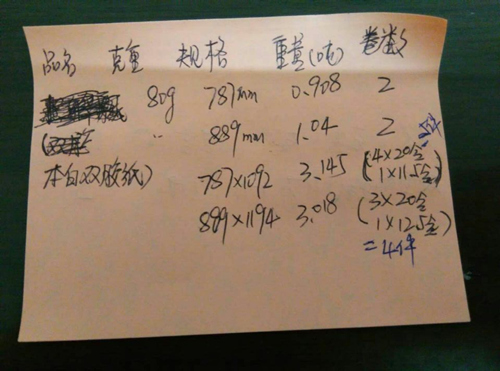 品名 克重 规格 重量(吨) 卷数
80g 787mm 0.908 2
〃 889mm 1.04 2
本白双胶纸) 787×1092 3.145 (4×20令
1×115令)
889×1194 3.018 (3×20令
1×125令)
=4件